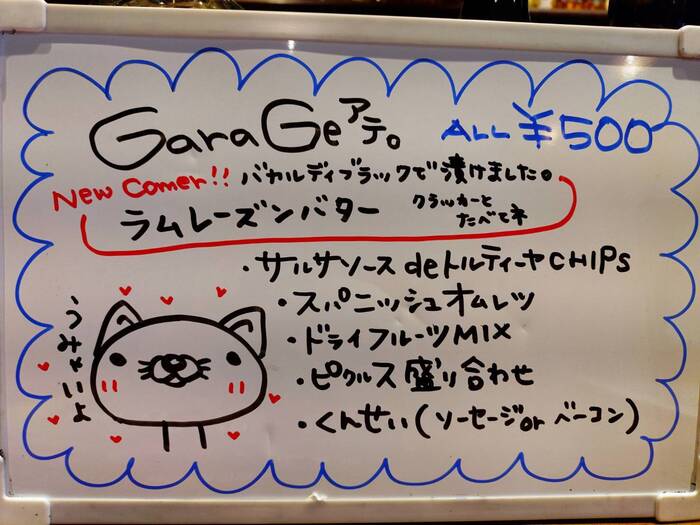 GaraGeアテ。 ALL ¥500
New Comer!! バカルディブラックで漬けました。
ラムレーズンバター クラッカーと
たべてネ
・サルサソース deトルティーヤCHIPs
・スパニッシュオムレツ
・ドライフルーツMIX
・ピクルス盛り合わせ
・くんせい(ソーセージor ベーコン)
うみゃいよ